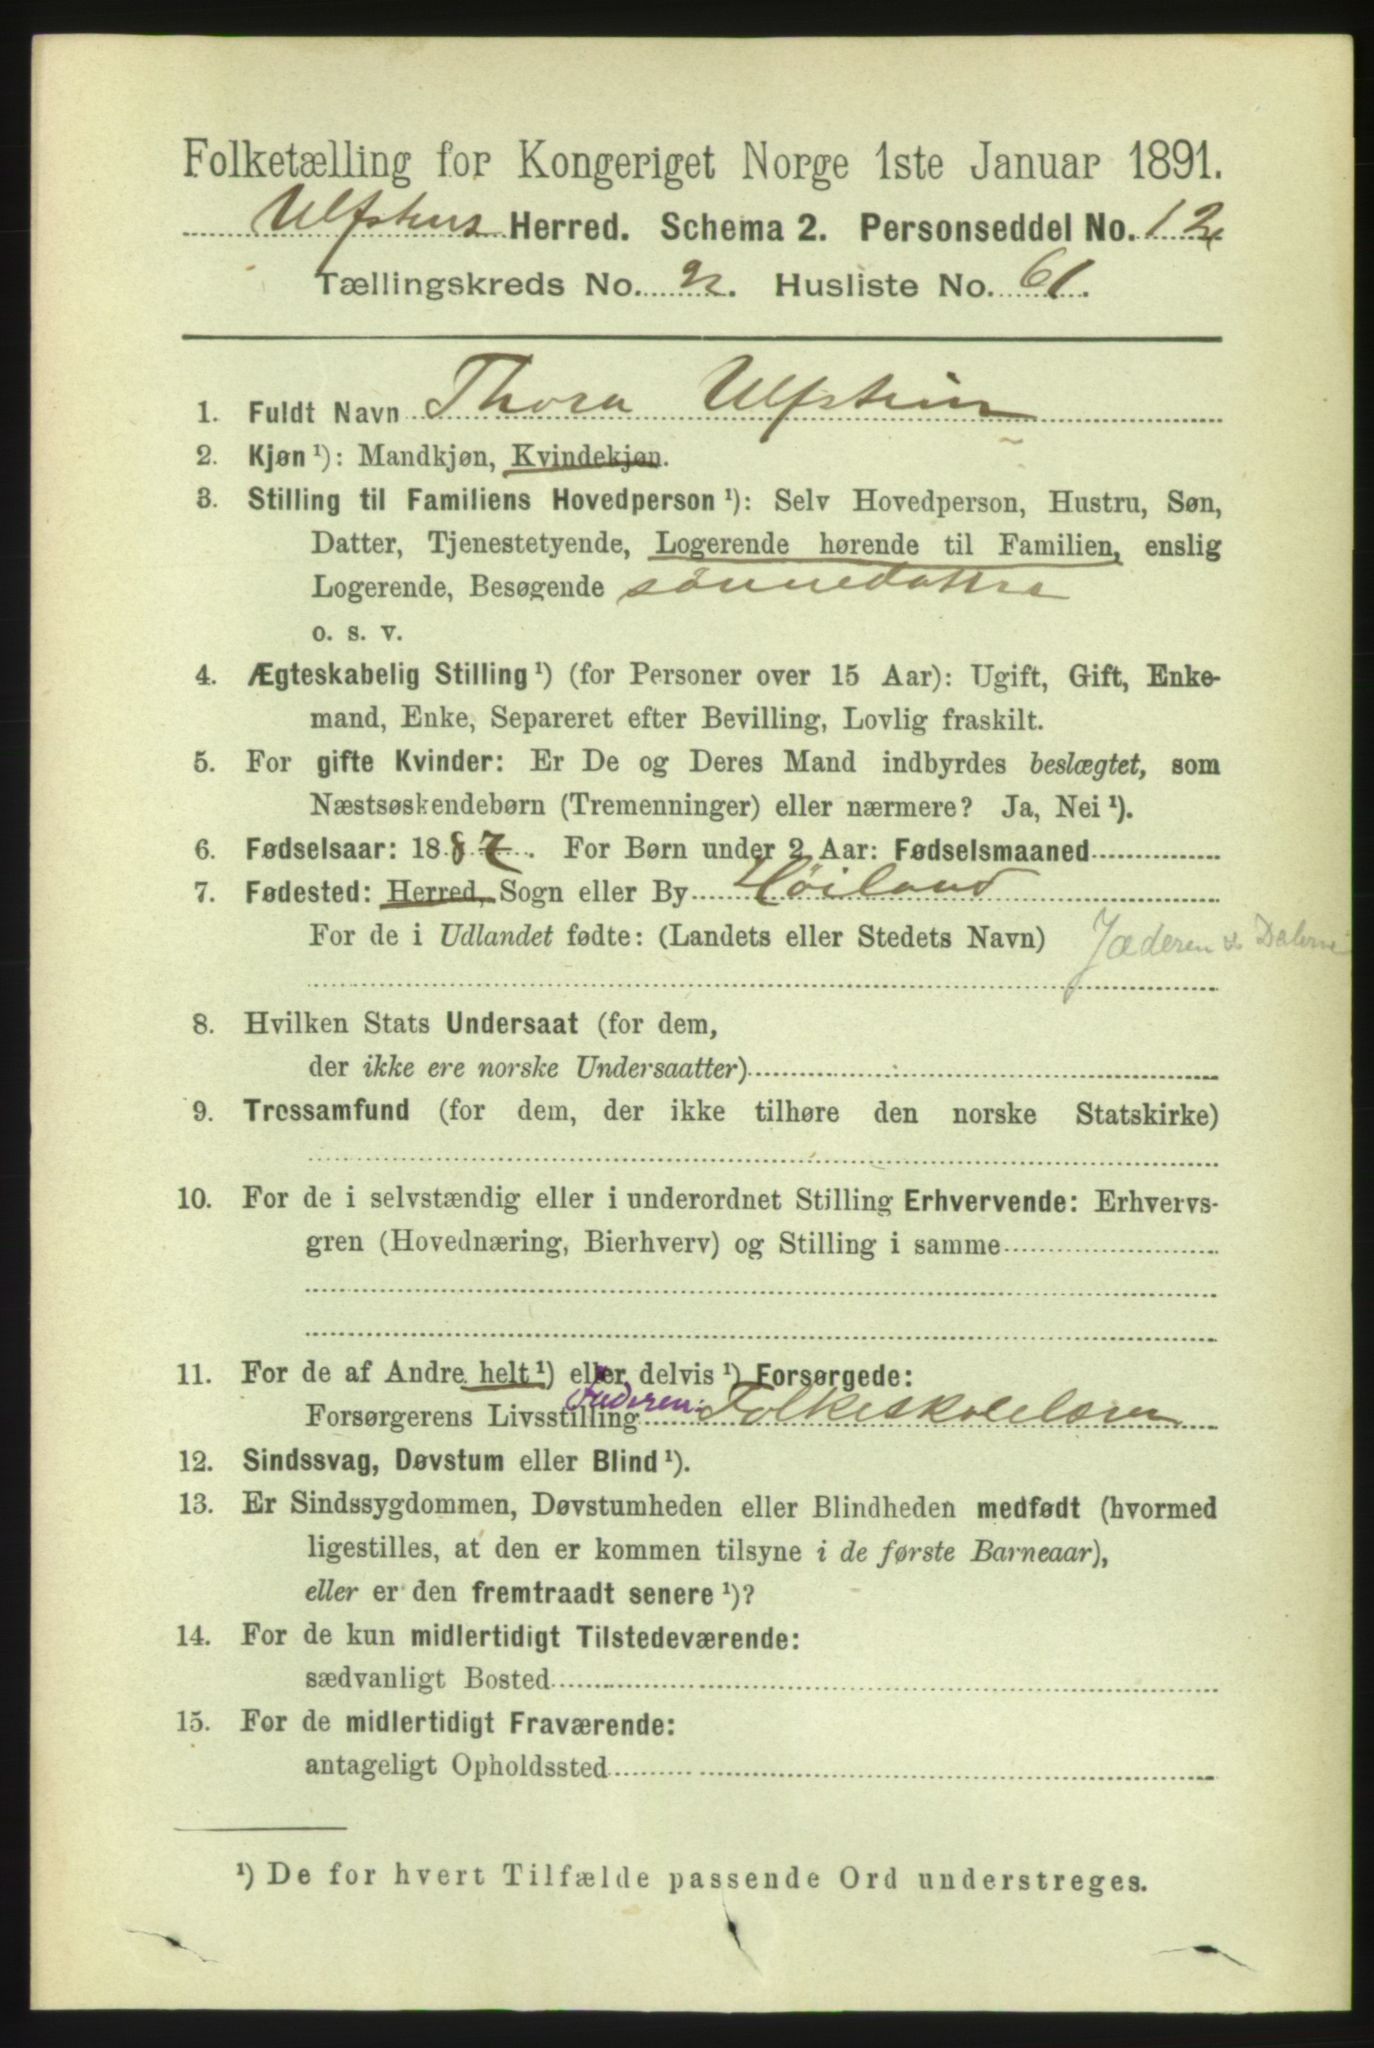 Folketælling for Kongeriget Norge 1ste Januar 1891.
Ulfsten Herred. Schema 2. Personseddel No. 12
Tællingskreds No. 2. Husliste No. 61.
1. Fuldt Navn Thora Ulfstein
2. Kjøn ¹): Mandkjøn, Kvindekjøn.
3. Stilling til Familiens Hovedperson ¹): Selv Hovedperson, Hustru, Søn,
Datter, Tjenestetyende, Logerende hørende til Familien, enslig
Logerende, Besøgende sønnedatter
o. s. v.
4. Ægteskabelig Stilling ¹) (for Personer over 15 Aar): Ugift, Gift, Enke-
mand, Enke, Separeret efter Bevilling, Lovlig fraskilt.
5. For gifte Kvinder: Er De og Deres Mand indbyrdes beslægtet, som
Næstsøskendebørn (Tremenninger) eller nærmere? Ja, Nei ¹).
6. Fødselsaar: 1887. For Børn under 2 Aar: Fødselsmaaned
7. Fødested: Herred, Sogn eller By Høiland
For de i Udlandet fødte: (Landets eller Stedets Navn) Jæderen & Dalerne
8. Hvilken Stats Undersaat (for dem,
der ikke ere norske Undersaatter)
9. Trossamfund (for dem, der ikke tilhøre den norske Statskirke)
10. For de i selvstændig eller i underordnet Stilling Erhvervende: Erhvervs-
gren (Hovednæring, Bierhverv) og Stilling i samme
11. For de af Andre helt ¹) eller delvis ¹) Forsørgede:
Forsørgerens Livsstilling Faderen: Folkeskolelærer
12. Sindssvag, Døvstum eller Blind ¹).
13. Er Sindssygdommen, Døvstumheden eller Blindheden medfødt (hvormed
ligestilles, at den er kommen tilsyne i de første Barneaar),
eller er den fremtraadt senere ¹)?
14. For de kun midlertidigt Tilstedeværende:
sædvanligt Bosted
15. For de midlertidigt Fraværende:
antageligt Opholdssted
¹) De for hvert Tilfælde passende Ord understreges.